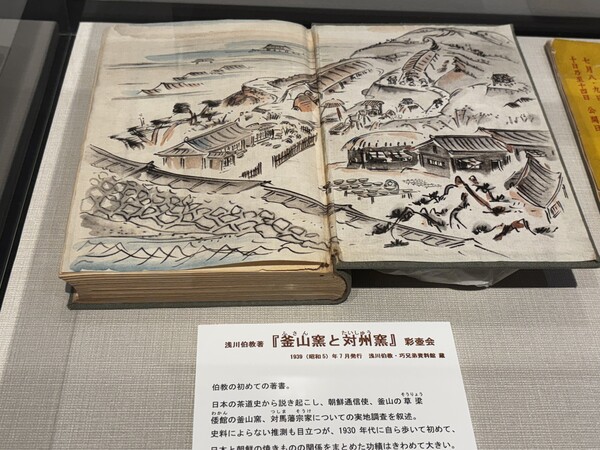 浅川伯教著『釜山窯と対州窯』彩壺会
1939（昭和5）年7月発行　浅川伯教・巧兄弟資料館 蔵
伯教の初めての著書。
日本の茶道史から説き起こし、朝鮮通信使、釜山の草梁
倭館の釜山窯、対馬藩宗家についての実地調査を叙述。
史料によらない推測も目立つが、1930年代に自ら歩いて初めて、
日本と朝鮮の焼きものの関係をまとめた功績はきわめて大きい。